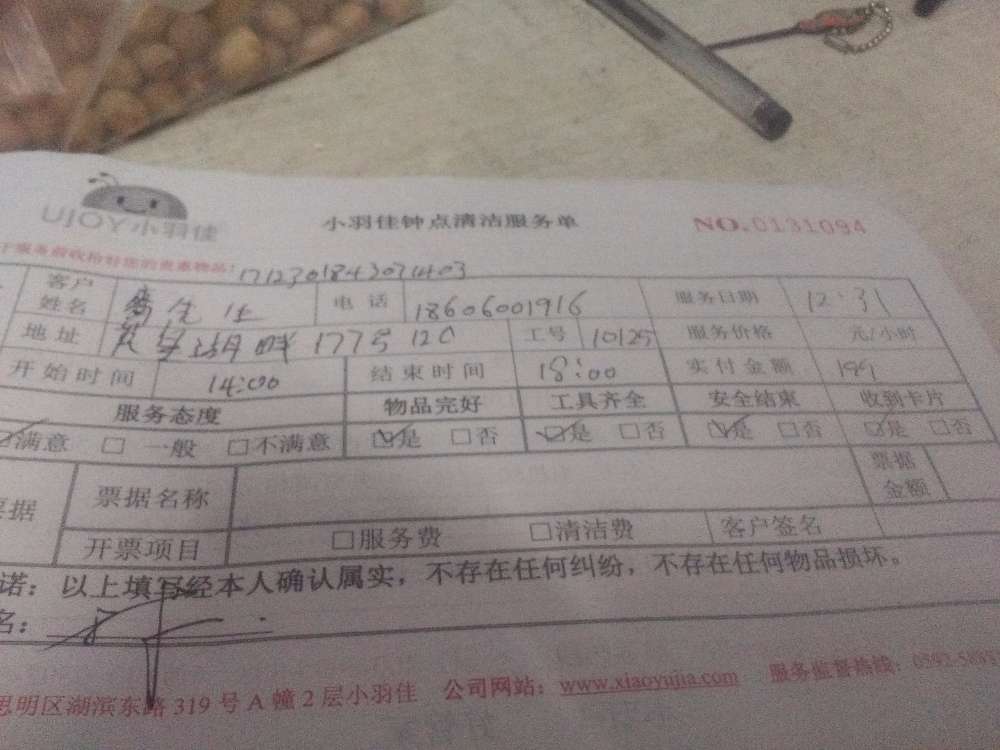 UJOY小羽佳
小羽佳钟点清洁服务单
NO.0131094
于服务前收拾好您的贵重物品!
1712301843031403
客户姓名 先生 电话 18606001916 服务日期 12.31
地址 湖畔 177号 12C 工号 10125 服务价格 元/小时
开始时间 14:00 结束时间 18:00 实付金额 199
服务态度 物品完好 工具齐全 安全结束 收到卡片
☑满意 □ 一般 □不满意 ☑是 □否 ☑是 □否 ☑是 □否 ☑是 □否
票据 票据名称 票据金额
开票项目 □服务费 □清洁费 客户签名
诺：以上填写经本人确认属实，不存在任何纠纷，不存在任何物品损坏。
名：
思明区湖滨东路 319 号 A 幢 2 层小羽佳 公司网站：www.xiaoyujia.com 服务监督热线：0592-5899